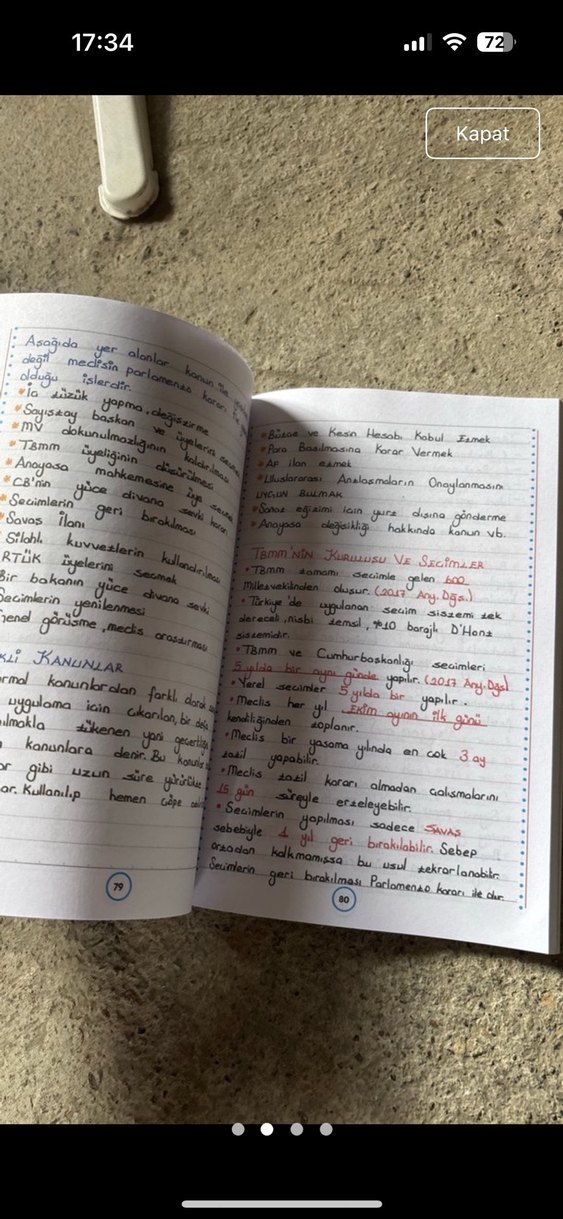 17:34
72
Kapat
Aşağıda yer alanlar kanun ile
değil meclisin parlamento kararı
olduğu işlerdir.
• İç tüzük yapma, değiştirme
• Sayıştay başkan ve üyelerini
• MV dokunulmazlığının kaldırılması
• TBMM üyeliğinin düşürülmesi
• Anayasa mahkemesine üye
• CB'nin yüce divana sevki kararı
• Seçimlerin geri bırakılması
• Savaş İlanı
Silahlı kuvvetlerin kullandırılması
RTÜK üyelerini seçmek
Bir bakanın yüce divana sevki
Seçimlerin yenilenmesi
Genel görüşme, meclis araştırması
KANUNLAR
kanunlardan farklı olarak
uygulama için çıkarılan, bir defa
tükenen yani geçerliliği
kanunlara denir. Bu kanunlar
gibi uzun süre yürürlükte
Kullanılıp hemen çöpe
79
• Bütçe ve Kesin Hesabı Kabul Etmek
• Para Basılmasına Karar Vermek
• AF ilan etmek
• Uluslararası Antlaşmaların Onaylanmasını
UYGUN BULMAK
• Sanat eğitimi için yurt dışına gönderme
• Anayasa değişikliği hakkında kanun vb.
TBMM'NİN KURULUŞU VE SEÇİMLER
• TBMM tamamı seçimle gelen 600
Milletvekilinden oluşur. (2017 Any. Dğş.)
• Türkiye'de uygulanan seçim sistemi tek
dereceli, nisbi temsil, %10 barajlı D'Hont
sistemidir.
• TBMM ve Cumhurbaşkanlığı seçimleri
5 yılda bir aynı günde yapılır. (2017 Any. Dğş)
• Yerel seçimler 5 yılda bir yapılır.
• Meclis her yıl EKİM ayının ilk günü
kendiliğinden toplanır.
• Meclis bir yasama yılında en çok 3 ay
tatil yapabilir.
• Meclis tatil kararı almadan çalışmalarını
15 gün süreyle erteleyebilir.
• Seçimlerin yapılması sadece SAVAŞ
sebebiyle 1 yıl geri bırakılabilir. Sebep
ortadan kalkmamışsa bu usul tekrarlanabilir.
Seçimlerin geri bırakılması Parlamento kararı ile olur.
80